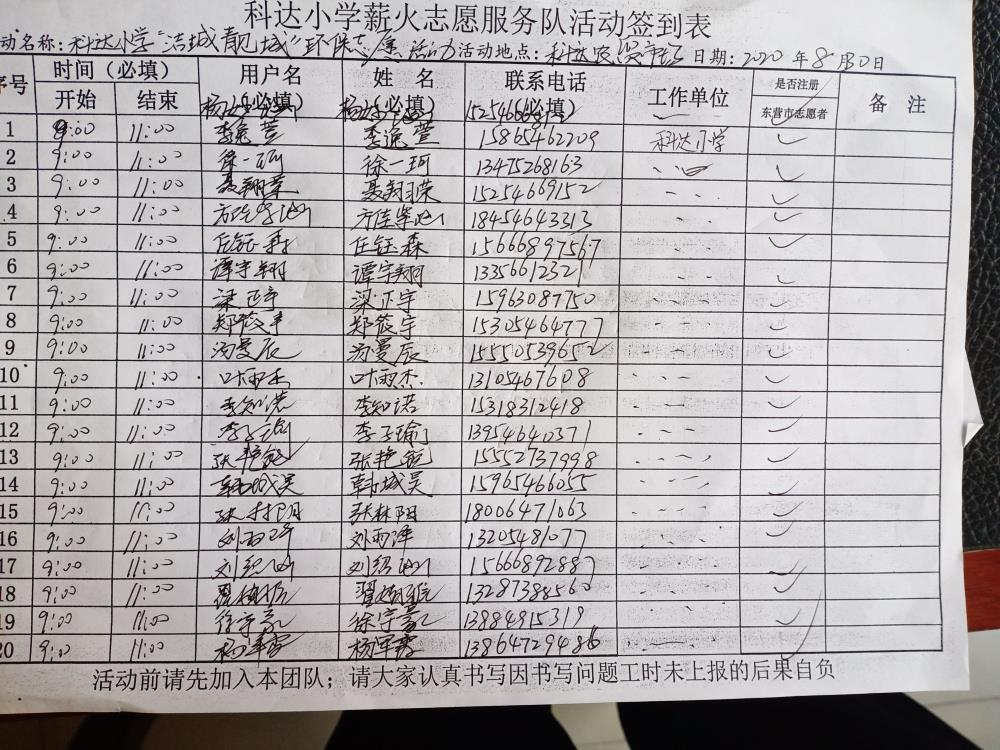 科达小学薪火志愿服务队活动签到表
动名称：科达小学“洁城靓城”环保志愿活动 活动地点：科达农贸市场 日期：2020年8月30日
序号 时间（必填） 用户名 姓 名 联系电话 工作单位 是否注册 备 注
开始 结束 （必填） （必填） （必填） 东营市志愿者
1 9:00 11:00 李逸萱 李逸萱 15865462209 科达小学 ✓
2 9:00 11:00 徐一珂 徐一珂 13475268163 ✓
3 9:00 11:00 聂翔荣 聂翔荣 15254669152 ✓
4 9:00 11:00 18454643313 ✓
5 9:00 11:00 任钰森 任钰森 15666897567 ✓
6 9:00 11:00 谭宇翔 谭宇翔 13356612321 ✓
7 9:00 11:00 梁正宇 梁正宇 15963087750 ✓
8 9:00 11:00 郑筱宇 郑筱宇 15305464777 ✓
9 9:00 11:00 汤曼辰 汤曼辰 15550539652 ✓
10 9:00 11:00 叶雨杰 叶雨杰 13105467608 ✓
11 9:00 11:00 李知诺 李知诺 15318312418 ✓
12 9:00 11:00 李子瑜 李子瑜 13954640371 ✓
13 9:00 11:00 张艳 张艳 15552737998 ✓
14 9:00 11:00 韩城昊 韩城昊 15965466055 ✓
15 9:00 11:00 张林阳 张林阳 18006471063 ✓
16 9:00 11:00 刘雨泽 刘雨泽 13205481077 ✓
17 9:00 11:00 刘 刘 15666892887 ✓
18 9:00 11:00 翟 翟 13287388560 ✓
19 9:00 11:00 徐宇豪 徐宇豪 13984915319
20 9:00 11:00 杨 杨 13864729486
活动前请先加入本团队；请大家认真书写因书写问题工时未上报的后果自负